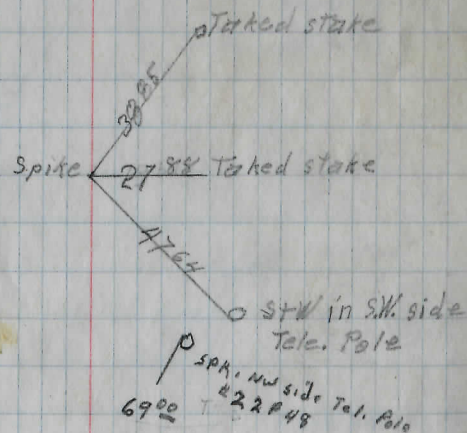 Taked stake
38 85
Spike
27 88 Taked stake
47 64
S+W in S.W. side
Tele. Pole
Spk. NW side Tel. Pole
#22P48
69 00